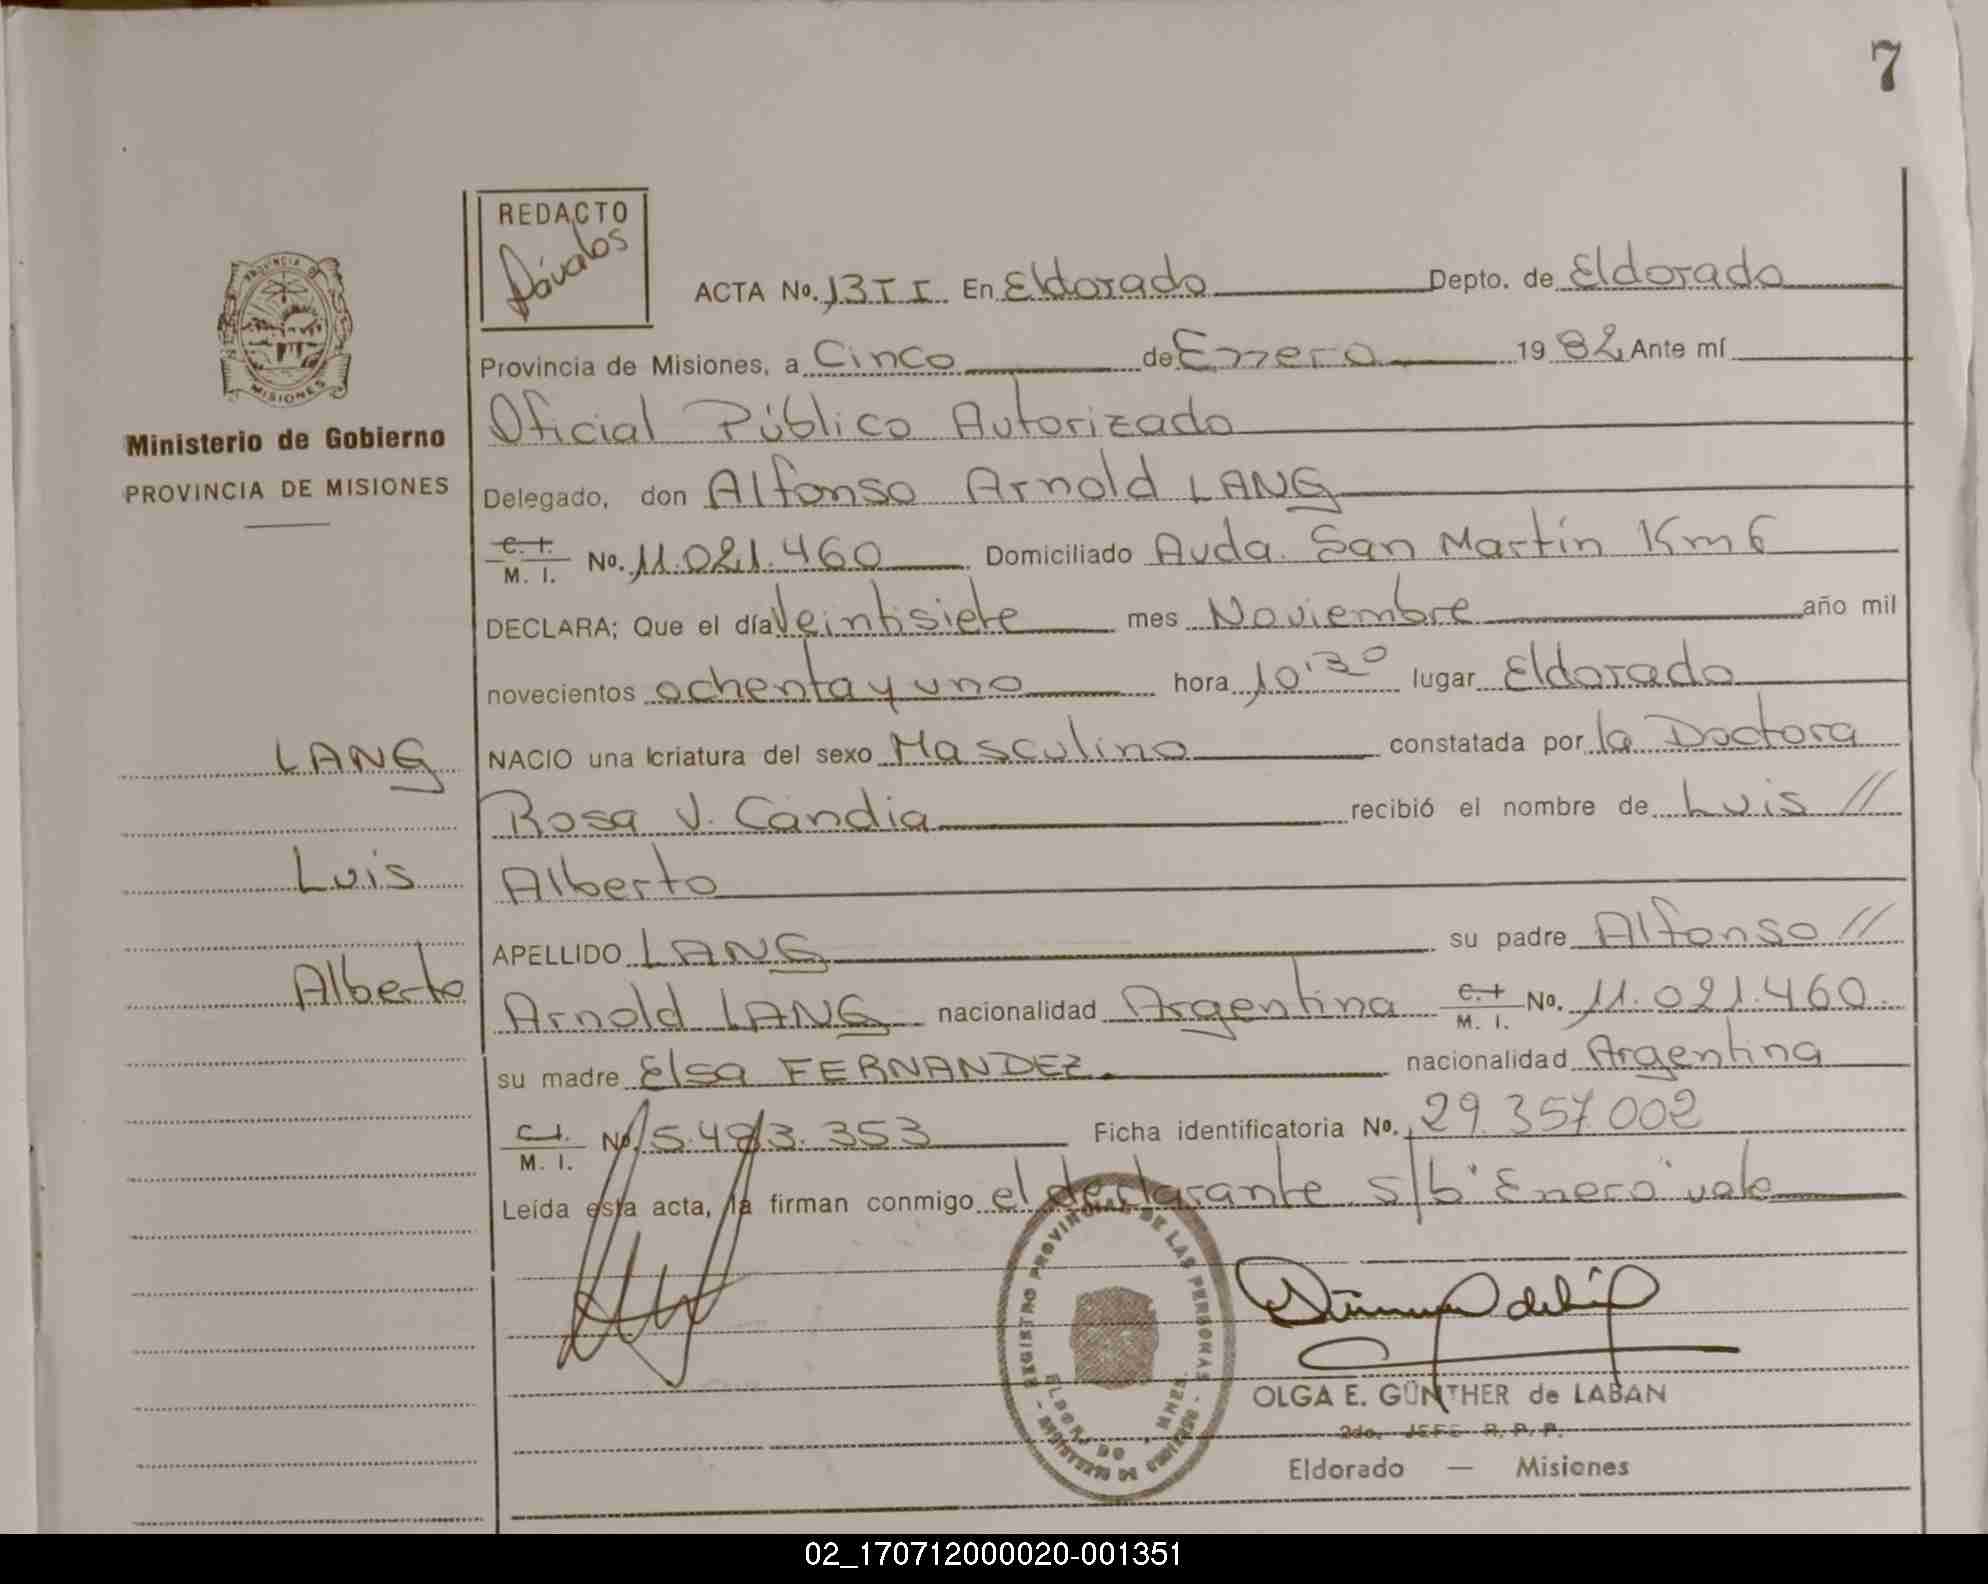 7
REDACTO
Dávalos
ACTA No. 13 T I. En Eldorado Depto. de Eldorado
Provincia de Misiones, a Cinco de Enero 1982 Ante mí
Oficial Público Autorizado
Delegado, don Alfonso Arnold LANG
C. I. M. I. No. 11.021.460 Domiciliado Avda. San Martín Km 6
DECLARA; Que el día Veintisiete mes Noviembre año mil
novecientos ochenta y uno hora 10'30 lugar Eldorado
NACIO una criatura del sexo Masculino constatada por la Doctora
Rosa V. Candia recibió el nombre de Luis //
Alberto
APELLIDO LANG su padre Alfonso //
Arnold LANG nacionalidad Argentina C. I. M. I. No. 11.021.460.
su madre Elsa FERNANDEZ. nacionalidad Argentina
C. I. M. I. No. 5.493.353 Ficha identificatoria No. 29.357.002
Leída esta acta, la firman conmigo el declarante s/b "Enero" vale
PROVINCIA DE MISIONES
Ministerio de Gobierno
PROVINCIA DE MISIONES
LANG
Luis
Alberto
REGISTRO PROVINCIAL DE LAS PERSONAS
ELDORADO
OLGA E. GÜNTHER de LABAN
2do. JEFE R. P. P.
Eldorado — Misiones
02_170712000020-001351